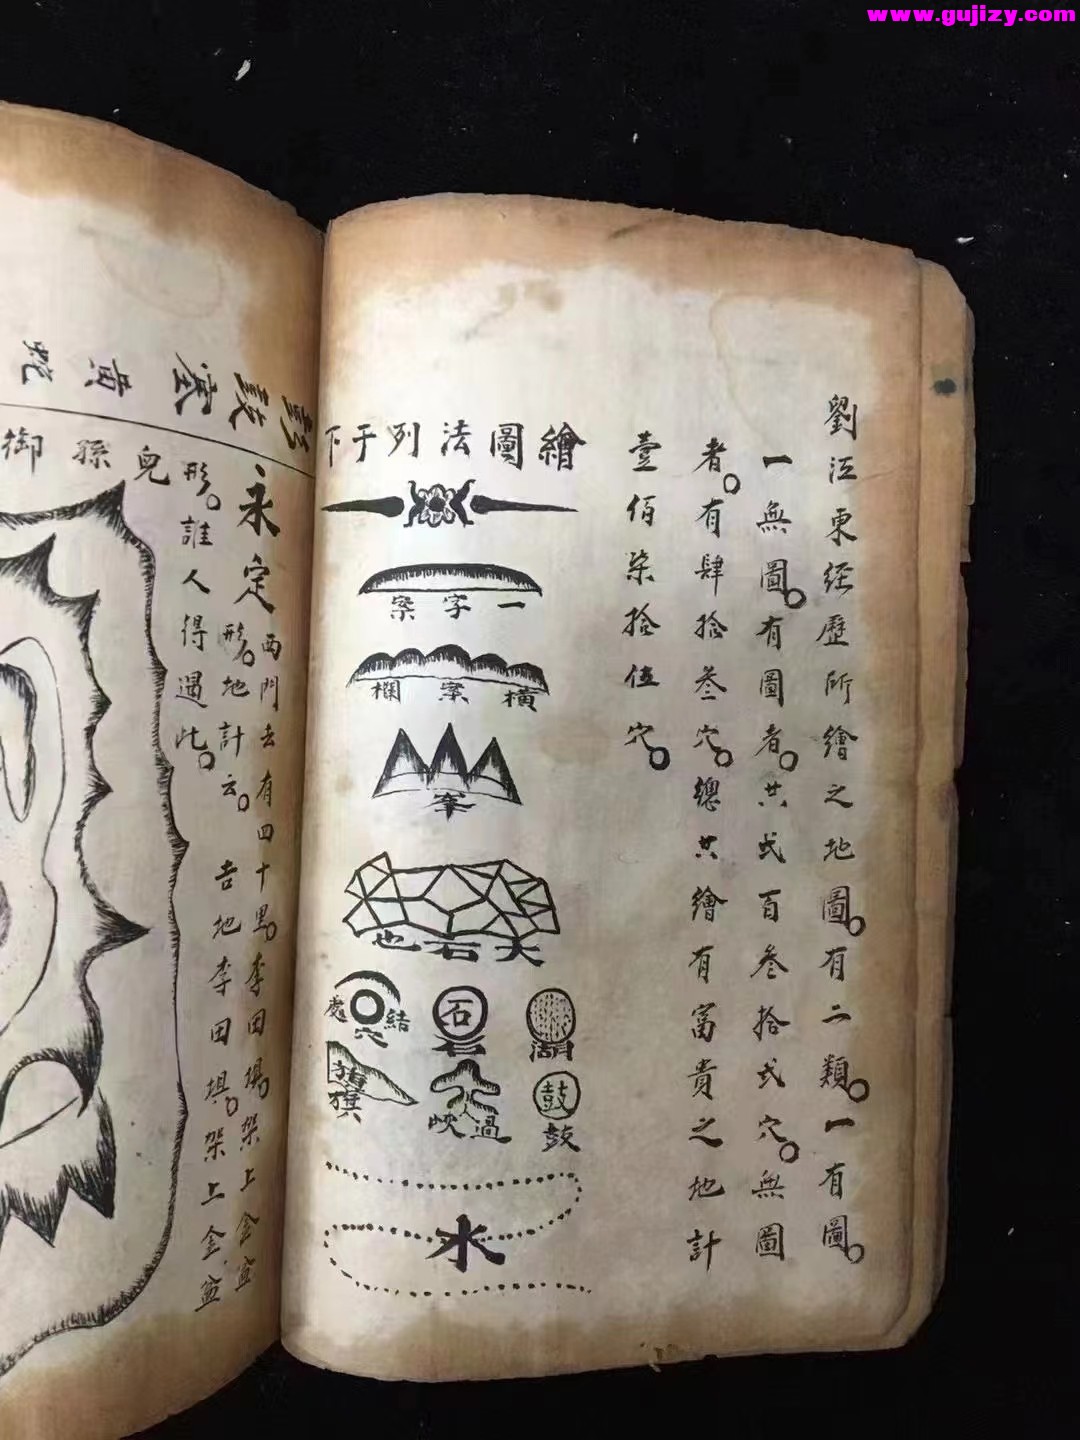 www.gujizy.com
劉江東經歷所繪之地圖。有二類。一有圖。
一無圖。有圖者。共弍百叁拾弍穴。無圖
者。有肆拾叁穴。總共繪有富貴之地計
壹佰柒拾伍穴。
繪圖法列于下
一字案
橫案欄
峯
大石也
湖
石
石
結穴處
鼓
鼓
過峽
旗
旗
水
永定
西門去有四十里。李田塤。架上金盆
形。地計云。吉地李田塤。架上金盆
形。誰人得遇此。
兒孫御
黃蛇